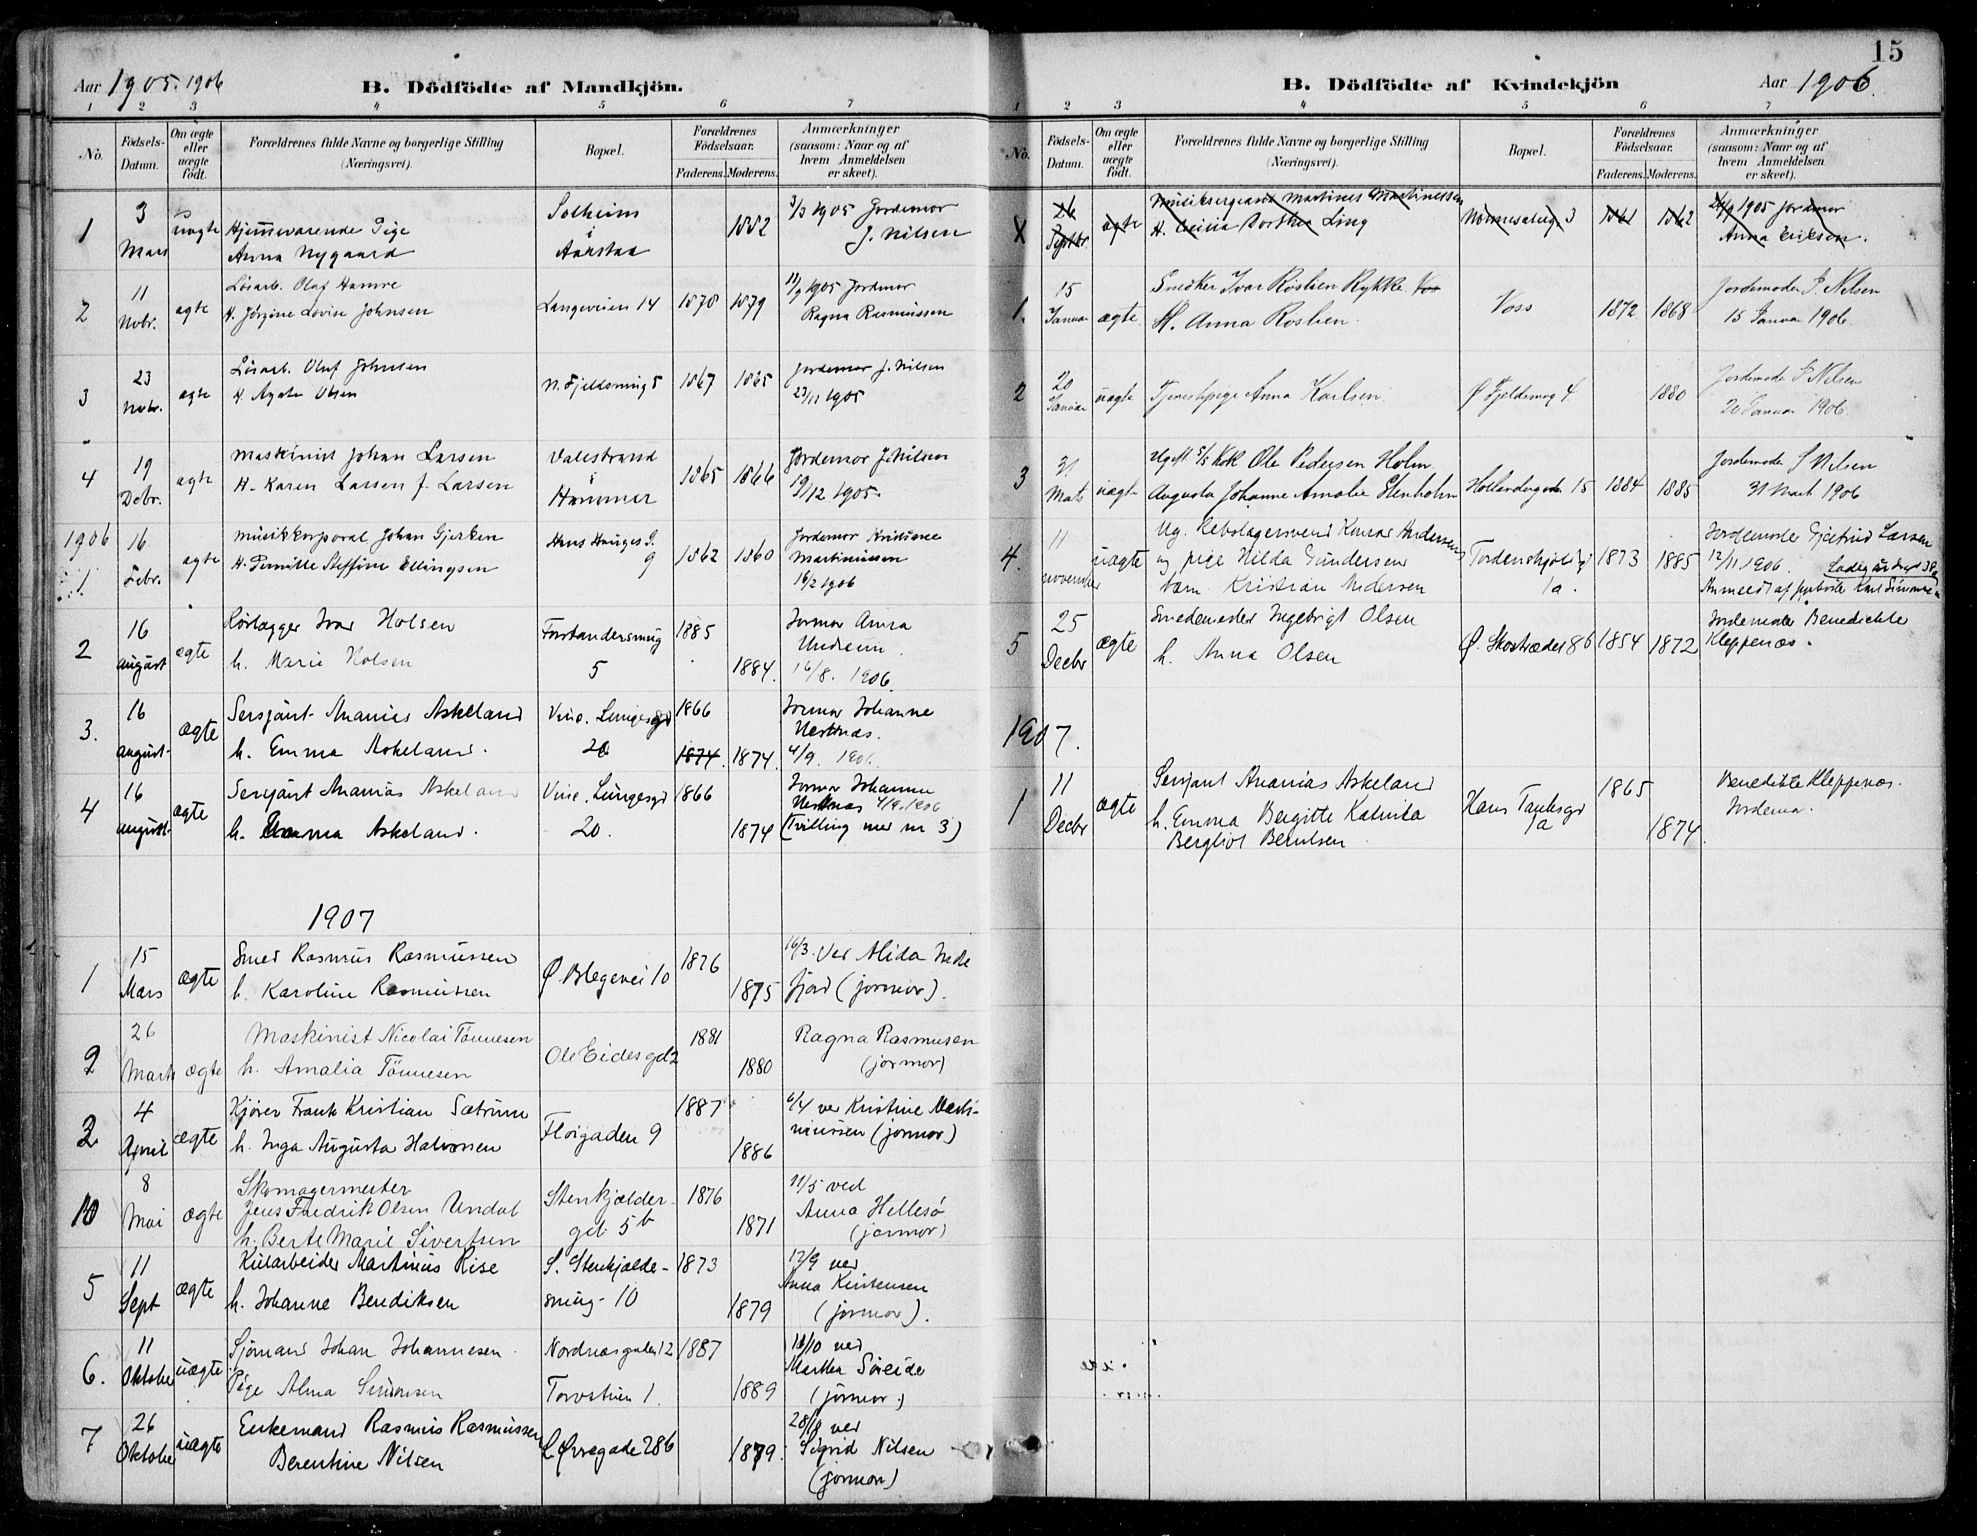 Aar 1905. 1906
B. Dödfödte af Mandkjön.
1 2 3 4 5 6 7
No. Födsels-Datum. Om ægte eller uægte födt. Forældrenes fulde Navne og borgerlige Stilling (Næringsvei). Bopæl. Forældrenes Födselsaar. Faderens. Moderens. Anmærkninger (saasom: Naar og af hvem Anmeldelsen er skeet).
1 3 Mars uægte Hjemmeværende Pige Anna Nygaard Solheim i Aarstad 1882 3/3 1905 Jordemor J. Nilsen
2 11 Novbr. ægte Løsarb. Olaf Hamre H. Jørgine Lovise Johnsen Langeveien 14 1878 1879 1905 Jordemor Ragna Rasmussen
3 23 Novbr. ægte Løsarb. Oluf Johnsen H. Agate Olsen N. Fjeldsmug 5 1867 1865 Jordemor J. Nilsen 23/11 1905
4 19 Debr. ægte Maskinist Johan Larsen H. Karen Larsen f. Larsen Valestrand i Hammer 1865 1866 Jordemor J. Nilsen 19/12 1905.
1906
1 16 Febr. ægte Musikkorporal Johan Gjerken H. Pernille Steffine Ellingsen Hans Hauges G. 9 1862 1860 Jordemor Kristiane Martinussen 16/2 1906
2 16 august ægte Rørlægger Ivar Holsen h. Marie Holsen Forstandersmug 5 1885 1884. Jormor Anna Undeim. 16/8. 1906.
3. 16 august- ægte Sersjant Ananias Askeland h. Emma Askeland. Vine. Lungesgd 20 1866 1874. 1874. Jormor Johanne Nestnæs. 4/9. 1906.
4 16 august- ægte Sersjant Ananias Askeland h. Emma Askeland. Vine. Lungesgd 20. 1866 1874 Jormor Johanne Nestnæs 4/9.1906 (Tvilling med nr 3)
1907
1 15 Mars ægte Smed Rasmus Rasmussen h. Karoline Rasmussen Ø Blegevei 10 1876 1875 16/3. Ved Alida Indre fjord (jormor).
2 26 Marts ægte Maskinist Nicolai Tönnesen h. Amalia Tönnesen Ole Eides gd 2 1881 1880 Ragna Rasmusen (jormor)
3 4 April ægte Kjører Frants Kristian Sætrum h. Inga Augusta Halvorsen Fløigaden 9 1887 1886 6/4 ved Kristine Martinussen (jormor)
10 8 Mai ægte Skomagermester Jens Fredrik Olsen Undal h. Berte Marie Sivertsen Stenkjelder-gd. 5b 1876 1871 11/5 ved Anna Hellesø (jormor)
5 11 Sept ægte Kularbeider Martinus Rise h. Johanne Bendiksen S. Stenkjelde-smug- 10 1873 1879 12/9 ved Anna Kristensen (jormor).
6. 11 Oktober uægte Sjømand Johan Johannesen Pige Alma Simonsen Nordnæsgaden 12 Torvstuen 1. 1887 1889 ved Martha Søreide (jormor.)
7 26 Oktober uægte Enkemand Rasmus Rasmussen Berentine Nilsen L. Øvregade 286 1879. 28/10 ved Sigrid Nilsen (jormor)
15
B. Dödfödte af Kvindekjön
Aar 1906.
1 2 3 4 5 6 7
No. Födsels-Datum. Om ægte eller uægte födt. Forældrenes fulde Navne og borgerlige Stilling (Næringsvei). Bopæl. Forældrenes Födselsaar. Faderens. Moderens. Anmærkninger (saasom: Naar og af hvem Anmeldelsen er skeet).
26 Septbr. ægte Musiksergeant Martinus Martinussen H. Dorthea Ling 3 1861 1862 1905 Jordmor Anna Eriksen.
1. 15 Januar ægte. Smöker Ivar Röslien Rykke Vos H. Anna Roslien. Voss 1872 1868 Jordemoder J. Nilsen 15 Januar 1906.
2 20 Januar uægte Tjenestepige Anna Karlsen. Ø Fjeldsmug 4. 1880 Jordemoder J. Nilsen 20 Januar 1906.
3 31 Mats uægte Ugift Kok Ole Pedersen Holm Augusta Johanne Amalie Stenholm Hollandergaden 15 1884 1885 Jordemoder J. Nilsen 31 Mart 1906
4. 11 november uægte Ug. Rebslagersvend Konrad Andersen og pige Hilda Gundersen barn Kristian Andersen Tordenskjolds g. 1a. 1873 1885 Jordemoder Gjertrud Larsen 12/11 1906. Ladegaardsgd 38 Anmeldt af
5 25 Decbr ægte Smedemester Ingebrigt Olsen h. Anna Olsen Ø. Skostræde 86 1854 1872 Jordemoder Benedichte Kleppenæs.
1907.
1 11 Decbr ægte Sersjant Ananias Askeland h. Emma Bergitte Katrika Bergliot Berntsen Hans Tanksgd 1a 1865 1874. Benedikte Kleppenæs. Jordemo.